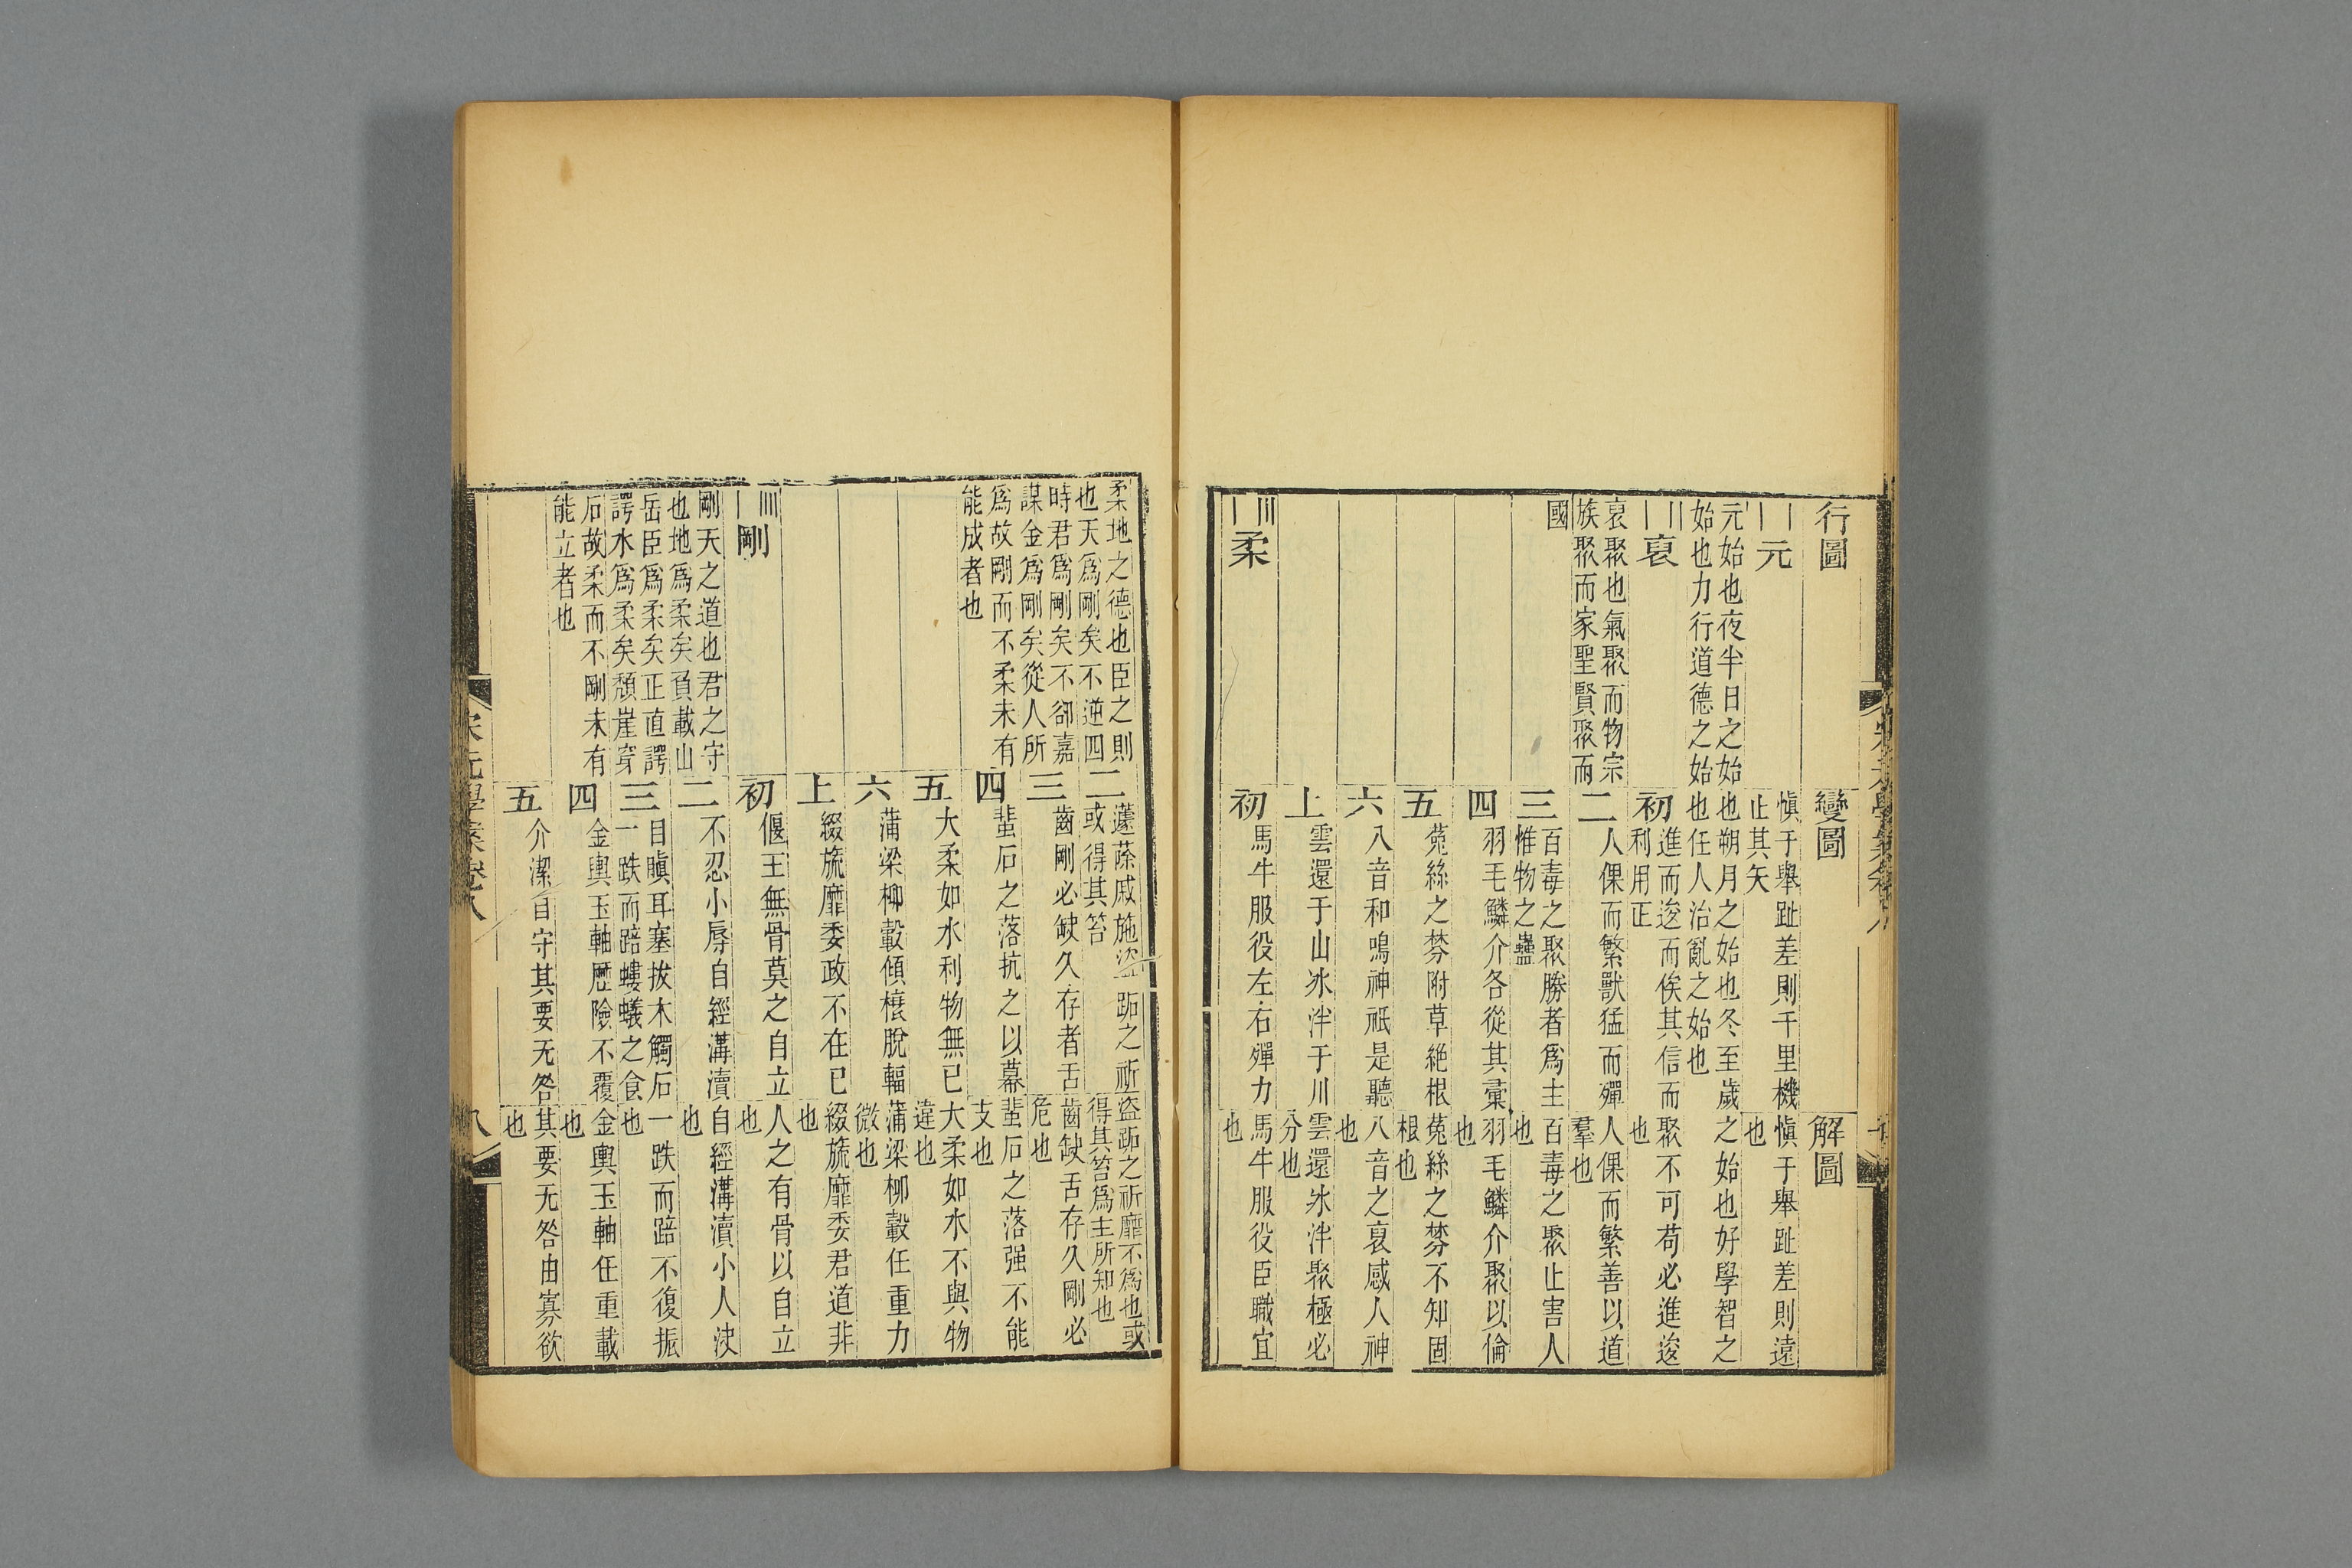 行圖
變圖
解圖
元
愼于舉趾差則千里機
止其矢
愼于舉趾差則遠
也
元始也夜半日之始也朔月之始也冬至歲之始也好學智之
始也力行道德之始也任人治亂之始也
裒
初
進而逡而俟其信而
利用正
聚不可苟必進逡
也
裒聚也氣聚而物宗
族聚而家聖賢聚而
國
二
人倮而繁獸猛而殫
人倮而繁善以道
羣也
三
百毒之聚勝者爲主
惟物之蠱
百毒之聚止害人
也
四
羽毛鱗介各從其彙
羽毛鱗介聚以倫
也
五
菟絲之棼附草絶根
菟絲之棼不知固
根也
六
八音和鳴神祇是聽
八音之裒感人神
也
上
雲還于山冰泮于川
雲還冰泮聚極必
分也
柔
初
馬牛服役左右殫力
馬牛服役臣職宜
也
柔地之德也臣之則
也天爲剛矣不逆四
時君爲剛矣不卻嘉
謀金爲剛矣從人所
爲故剛而不柔未有
能成者也
二
蘧蒢戚施盜跖之祈
或得其笞
盜跖之祈靡不爲也或
得其笞爲主所知也
三
齒剛必缺久存者舌
齒缺舌存久剛必
危也
四
蜚石之落抗之以幕
蜚石之落强不能
支也
五
大柔如水利物無已
大柔如水不與物
違也
六
蒲梁柳轂傾榱脫輻
蒲梁柳轂任重力
微也
上
綴旒靡委政不在已
綴旒靡委君道非
也
剛
初
偃王無骨莫之自立
人之有骨以自立
也
剛天之道也君之守
也地爲柔矣負載山
岳臣爲柔矣正直諤
諤水爲柔矣頹崖穿
石故柔而不剛未有
能立者也
二
不忍小辱自經溝瀆
自經溝瀆小人決
也
三
目瞋耳塞拔木觸石
一跌而踣螻蟻之食
一跌而踣不復振
也
四
金輿玉軸歷險不覆
金輿玉軸任重載
也
五
介潔自守其要无咎
其要无咎由寡欲
也
宋元學案卷八
八